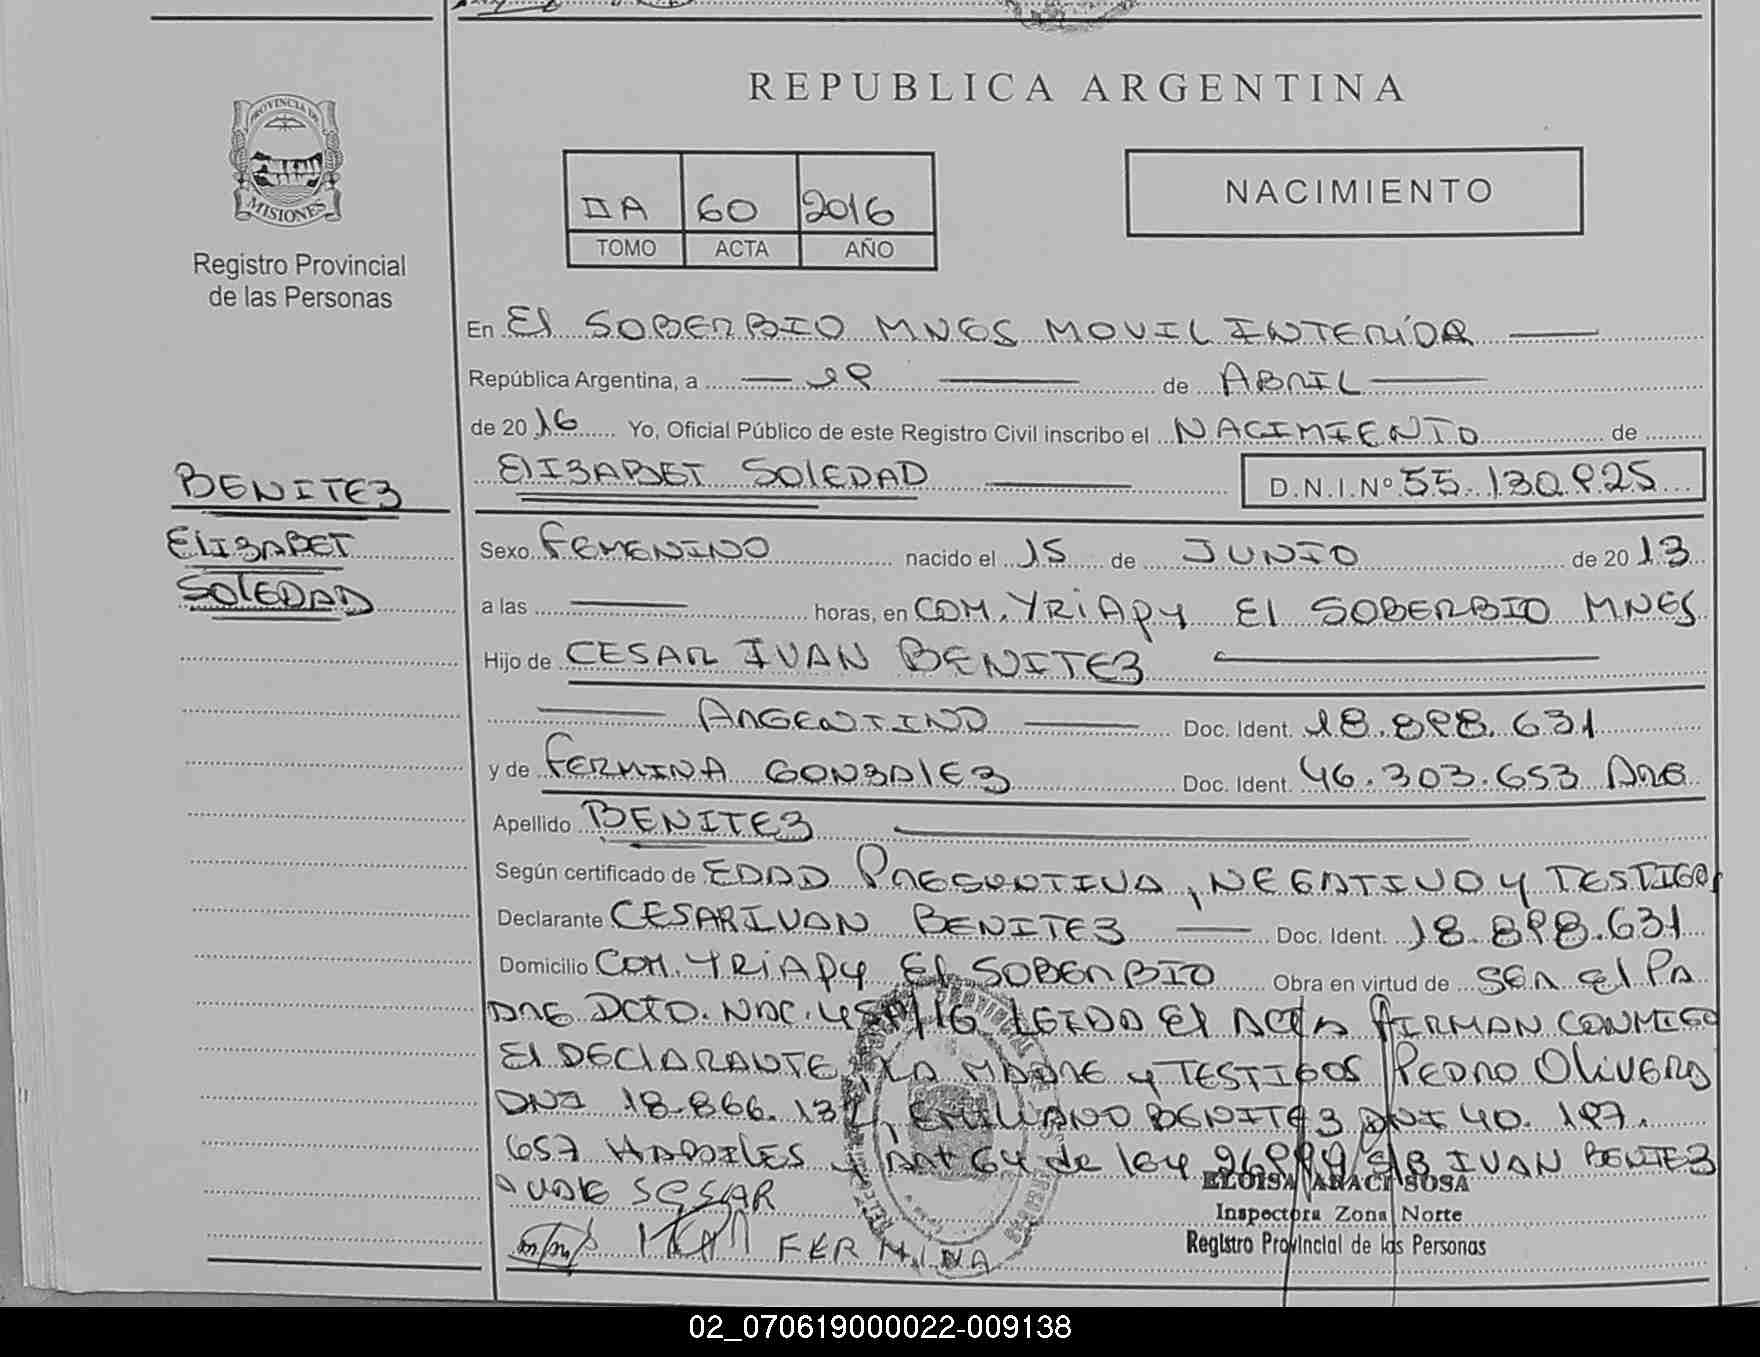 REPUBLICA ARGENTINA
PROVINCIA DE
MISIONES
Registro Provincial
de las Personas
II A 60 2016
TOMO ACTA AÑO
NACIMIENTO
En El SOBERBIO MNES MOVIL INTERIOR
República Argentina, a 19 de ABRIL
de 2016 Yo, Oficial Público de este Registro Civil inscribo el NACIMIENTO de
ELIZABET SOLEDAD D.N.I.Nº 55.130.925
BENITEZ
ELIZABET
SOLEDAD
Sexo FEMENINO nacido el 15 de JUNIO de 2013
a las horas, en COM. YRIAPY El SOBERBIO MNES
Hijo de CESAR IVAN BENITEZ
ARGENTINO Doc. Ident. 18.898.631
y de FERMINA GONZALEZ Doc. Ident. 46.303.653 ARG
Apellido BENITEZ
Según certificado de EDAD PRESUNTIVA, NEGATIVO y TESTIGOS
Declarante CESAR IVAN BENITEZ Doc. Ident. 18.898.631
Domicilio COM. YRIAPY El SOBERBIO Obra en virtud de SER El PA
DRE DCTO. NAC. /16 LEIDA El ACTA FIRMAN CONMIGO
El DECLARANTE, LA MADRE y TESTIGOS PEDRO OLIVERA
DNI 18.866. EMILIANO BENITEZ DNI 40.197.
657 HABILES y Art 64 de ley S/B IVAN BENITEZ
FERMINA
ELOISA ARACI SOSA
Inspectora Zona Norte
Registro Provincial de las Personas
02_070619000022-009138